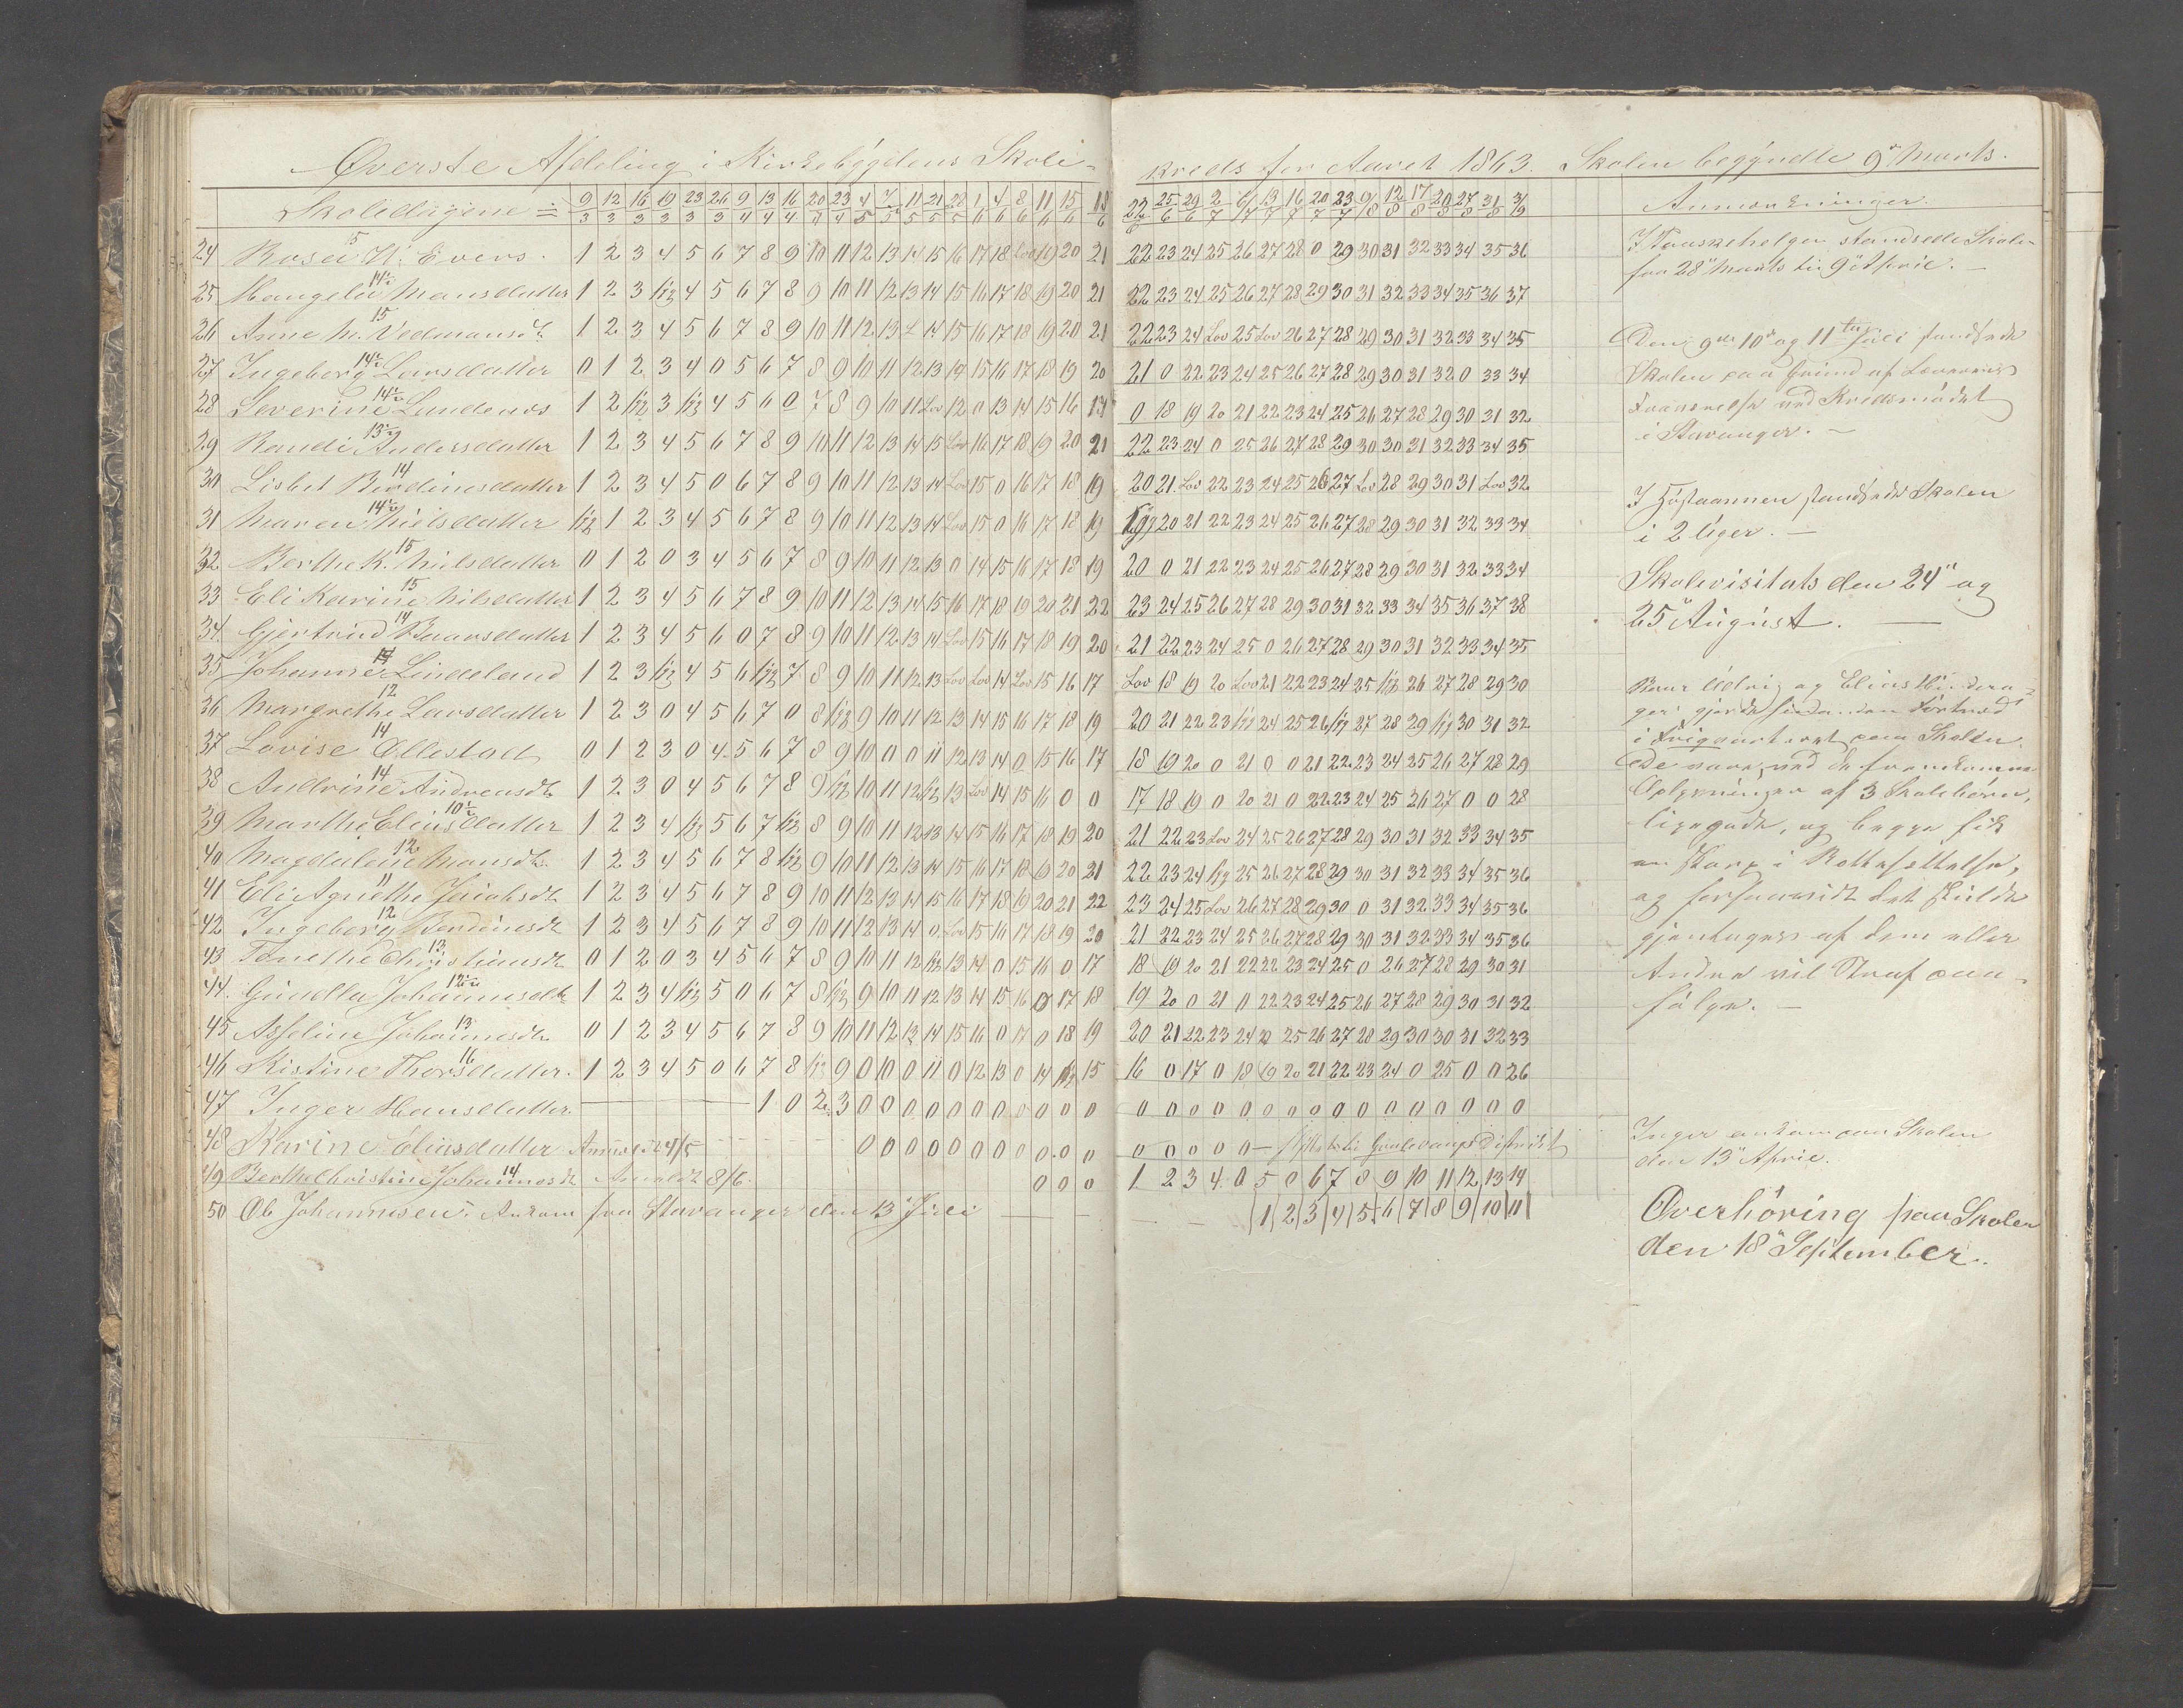 Øverste Afdeling i Kirkebygdens Skole- kreds for Aaret 1863. Skolen begyndte 9de Marts.
Skoledagene = 9/3 12/3 16/3 19/3 23/3 26/3 9/4 13/4 16/4 20/4 23/4 4/5 7/5 11/5 21/5 28/5 1/6 4/6 8/6 11/6 15/6 18/6 22/6 25/6 29/6 2/7 6/7 13/7 16/7 20/7 23/7 9/8 12/8 17/8 20/8 27/8 31/8 3/9 Anmærkninger.
24 1 2 3 4 5 6 7 8 9 10 11 12 13 14 15 16 17 18 Lov 19 20 21 22 23 24 25 26 27 28 0 29 30 31 32 33 34 35 36
25 Mansdatter 1 2 3 1/2 4 5 6 7 8 9 10 11 12 13 14 15 16 17 18 19 20 21 22 23 24 25 26 27 28 29 30 31 32 33 34 35 36 37
26 Anne M. 15 1 2 3 4 5 6 7 8 9 10 11 12 13 L 14 15 16 17 18 19 20 21 22 23 24 Lov 25 Lov 26 27 28 29 30 31 32 33 34 35
27 Ingeborg Larsdatter 0 1 2 3 4 0 5 6 7 8 9 10 11 12 13 14 15 16 17 18 19 20 21 0 22 23 24 25 26 27 28 29 30 31 32 0 33 34
28 Severine 1 2 1/2 3 1/2 4 5 6 0 7 8 9 10 11 Lov 12 0 13 14 15 16 17 0 18 19 20 21 22 23 24 25 26 27 28 29 30 31 32
29 Randi Andersdatter 1 2 3 4 5 6 7 8 9 10 11 12 13 14 15 Lov 16 17 18 19 20 21 22 23 24 0 25 26 27 28 29 30 30 31 32 33 34 35
30 Lisbet Berdinesdatter 14 1 2 3 4 5 0 6 7 8 9 10 11 12 13 14 Lov 15 0 16 17 18 19 20 21 Lov 22 23 24 25 26 27 Lov 28 29 30 31 Lov 32
31 Maren Nielsdatter 1/2 1 2 3 4 5 6 7 8 9 10 11 12 13 14 Lov 15 0 16 17 18 19 20 21 22 23 24 25 26 27 28 29 30 31 32 33 34
32 Berthe K. Nilsdatter 15 0 1 2 0 3 4 5 6 7 8 9 10 11 12 13 0 14 15 16 17 18 19 20 0 21 22 23 24 25 26 27 28 29 30 31 32 33 34
33 Eli Karine Nilsdatter 15 1 2 3 4 5 6 7 8 9 10 11 12 13 14 15 16 17 18 19 20 21 22 23 24 25 26 27 28 29 30 31 32 33 34 35 36 37 38
34 Gjertrud Baarsdatter 14 1 2 3 4 5 6 0 7 8 9 10 11 12 13 14 Lov 15 16 17 18 19 20 21 22 23 24 25 0 26 27 28 29 30 31 32 33 34 35
35 Johanne Lindeland 1 2 3 1/2 4 5 6 1/2 7 8 9 10 11 12 13 Lov Lov 14 Lov 15 16 17 Lov 18 19 20 Lov 21 22 23 24 25 1/2 26 27 28 29 30
36 Margrethe Larsdatter 12 1 2 3 0 4 5 6 7 0 8 1/2 9 10 11 12 13 14 15 16 17 18 19 20 21 22 23 1/2 24 25 26 1/2 27 28 29 1/2 30 31 32
37 Lovise Ollestad 14 0 1 2 3 0 4 5 6 7 8 9 10 0 0 11 12 13 14 0 15 16 17 18 19 20 0 21 0 0 21 22 23 24 25 26 27 28 29
38 Andreasdt. 14 1 2 3 0 4 5 6 7 8 9 1/2 10 11 12 1/2 13 Lov 14 15 16 0 0 17 18 19 0 20 21 0 22 23 24 25 26 27 0 0 28
39 Marthe Eliasdatter 10½ 1 2 3 4 1/2 5 6 7 1/2 8 9 10 11 12 13 14 15 16 17 18 19 20 21 22 23 Lov 24 25 26 27 28 29 30 31 32 33 34 35
40 Magdalene Mansdt. 12 1 2 3 4 5 6 7 8 1/2 9 10 11 12 13 14 15 16 17 18 19 20 21 22 23 24 1/2 25 26 27 28 29 30 31 32 33 34 35 36
41 Eli Agnethe 11 1 2 3 4 5 6 7 8 9 10 11 12 13 14 15 16 17 18 19 20 21 22 23 24 25 Lov 26 27 28 29 30 0 31 32 33 34 35 36
42 Ingeborg Berdinesdt 12 1 2 3 4 5 6 7 8 9 10 11 12 13 14 0 Lov 15 16 17 18 19 20 21 22 23 24 25 26 27 28 29 30 31 32 33 34 35 36
43 Tonethe Christiansdt 13 0 1 2 0 3 4 5 6 7 8 9 10 11 12 1/2 13 14 0 15 16 0 17 18 19 20 21 22 22 23 24 25 0 26 27 28 29 30 31
44. Johannesdt 1 2 3 4 1/2 5 0 6 7 8 1/2 9 10 11 12 13 14 15 16 0 17 18 19 20 0 21 0 22 23 24 25 26 27 28 29 30 31 32
45 Asseline Johannesdt. 13 0 1 2 3 4 5 6 7 8 9 10 11 12 13 14 15 16 0 17 0 18 19 20 21 22 23 24 25 26 27 28 29 30 30 31 32 33
46 Kistine Thorsdatter. 16 1 2 3 4 5 0 6 7 8 1/2 9 0 10 0 11 0 12 13 0 14 1/2 15 16 0 17 0 18 19 20 21 22 23 24 0 25 0 0 26
47 Inger Hansdatter. 1 0 2 3 0 0 0 0 0 0 0 0 0 0 0 0 0 0 0 0 0 0 0 0 0 0 0 0 0 0
48 Karine Eliasdatter 4/5 0 0 0 0 0 0 0 0 0 0 0 0 0 0 0 - District
49 Berthe Christine Johannesdt 14 Anmeldt 8/6. 0 0 0 1 2 3 4 0 5 0 6 7 8 9 10 11 12 13 14
50 Ole Johannesen. Ankom fra Stavanger den 13de Juli 1 2 3 4 5 6 7 8 9 10 11
I Paaskehelgen standsede Skolen
fra 28de Marts til 9de April. -
Den 9de 10de og 11te Juli standsede
Skolen paa Grund af Lærerens
Fraværelse ved Kredsmødet
i Stavanger. -
I Høstaannen standsede Skolen
i 2 Uger. -
Skolevisitats den 24de og
25de August. -
og Elias
i Friqvarteret paa Skolen.
af 3 Skolebørn,
og begge fik
en skarp i Rettesættelse,
og det skulde
gjentages af dem eller
Andre vil Straf paa-
følge. -
Inger ankom paa Skolen
den 13de April.
Overhøring paa Skolen
den 18de September.